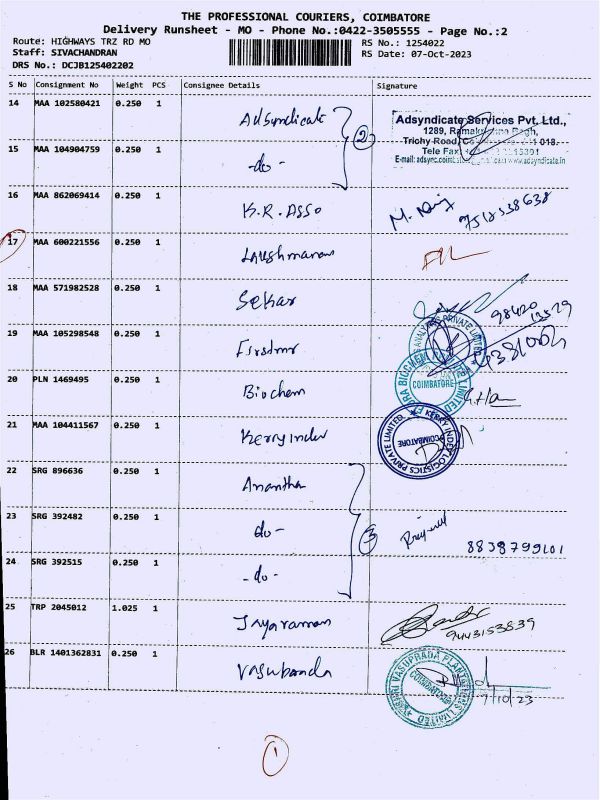 THE PROFESSIONAL COURIERS, COIMBATORE
Delivery Runsheet - MO - Phone No.:0422-3505555 - Page No.:2
Route: HIGHWAYS TRZ RD MO
RS No.: 1254022
Staff: SIVACHANDRAN
RS Date: 07-Oct-2023
DRS No.: DCJB125402202
S No Consignment No Weight PCS Consignee Details Signature
14 MAA 102580421 0.250 1 Adsyndicate
2
Adsyndicate Services Pvt. Ltd.,
1289,
Trichy Road, 018.
Tele Fax
www.adsyndicate.in
15 MAA 104904759 0.250 1 -do-
16 MAA 862069414 0.250 1 K.R. Asso
17 MAA 600221556 0.250 1 Lakshmanan
18 MAA 571982528 0.250 1 Sekar
19 MAA 105298548 0.250 1
20 PLN 1469495 0.250 1 Biochem
COIMBATORE
21 MAA 104411567 0.250 1 Kerry Indev
KERRY INDEV LOGISTICS PRIVATE LIMITED
COIMBATORE
22 SRG 896636 0.250 1 Anantha
23 SRG 392482 0.250 1 do-
3
8838799101
24 SRG 392515 0.250 1 -do-
25 TRP 2045012 1.025 1 Jayaraman
9443153839
26 BLR 1401362831 0.250 1 Vasubanda
COIMBATORE
7/10/23
1